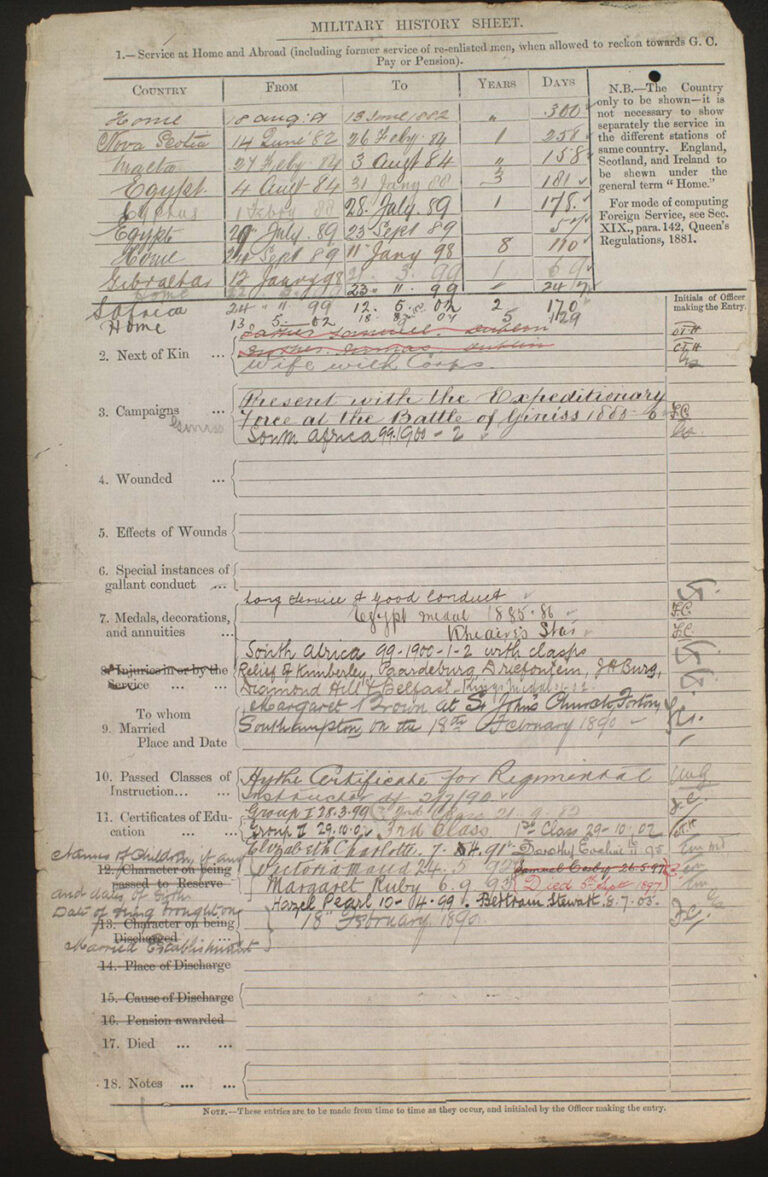 MILITARY HISTORY SHEET.
1.—Service at Home and Abroad (including former service of re-enlisted men, when allowed to reckon towards G. C.
Pay or Pension).
COUNTRY FROM TO YEARS DAYS
Home 18 Aug. 13 June 1882 " 300
Nova Scotia 14 June 82 26 Feby. 84 1 258
Malta 27 Feby. 84 3 Augt 84 " 158
Egypt 4 Augt 84 31 Jany 88 3 181
Cyprus 1 Febry 88 28 July. 89 1 178
Egypt 29 July. 89 23 Sept 89 57
Home 24 Sept 89 11 Jany 98 8 110
Gibraltar 12 Jany 98 3. 99 1 69
Home 23 " 11. 99 " 247
S Africa 24 " 11. 99 12. 5. 02 2 170
Home 13 5. 02 5 129
N.B.—The Country
only to be shown—it is
not necessary to show
separately the service in
the different stations of
same country. England,
Scotland, and Ireland to
be shewn under the
general term "Home."
For mode of computing
Foreign Service, see Sec.
XIX., para. 142, Queen's
Regulations, 1881.
Initials of Officer
making the Entry.
Father Samuel. Dublin
2. Next of Kin ... Dublin
Wife with Corps.
Present with the Expeditionary
3. Campaigns ... Force at the Battle of Giniss
Giniss
South Africa 99-1900-2
4. Wounded ...
5. Effects of Wounds
6. Special instances of
gallant conduct ...
Long Service & Good Conduct
7. Medals, decorations,
and annuities ...
Egypt medal 1885-86
Khedive's Star
South Africa 99-1900-1-2 with clasps
8. Injuries in or by the
Service ... ...
Relief of Kimberley, Paardeburg, Driefontein, JHBurg,
Diamond Hill & Belfast. Kings medal
To whom
9. Married
Place and Date
Margaret Brown at St John's Church, Forton,
Southampton, on the 18th February 1890
10. Passed Classes of
Instruction... ...
Hythe Certificate for Regimental
Instructor
11. Certificates of Edu-
cation ... ...
Group I 28.3.99
Group II 29.10.02 3rd Class 1st Class 29-10-02
Names of Children, if any
and dates of birth
12. Character on being
passed to Reserve
Elizabeth Charlotte. 91 Dorothy Eveline 95
Victoria Maud 24. 5 Samuel 26.5.97
Margaret Ruby 6. 9 93 Died Sept 1897
Hazel Pearl 10-4-99. Bertram Stewart 8.7.03.
Date of being brought on
13. Character on being
Discharged ...
Married Establishment
18th February 1890
14. Place of Discharge
15. Cause of Discharge
16. Pension awarded
17. Died ... ...
18. Notes ... ...
NOTE.—These entries are to be made from time to time as they occur, and initialed by the Officer making the entry.